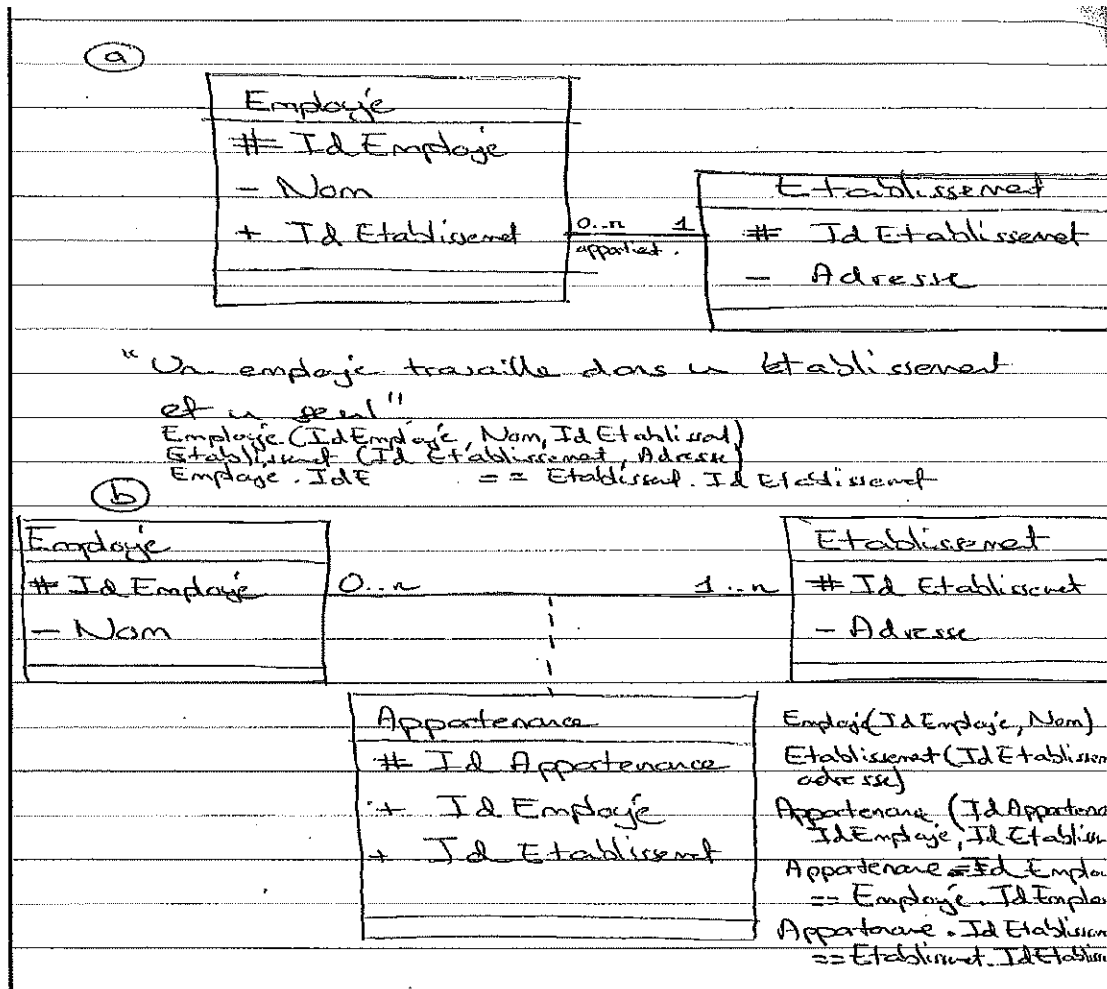 a
Employé
# Id Employé
- Nom
+ Id Etablissemet
0..n 1
appartiet.
Etablissemet
# Id Etablissemet
- Adresse
"Un employé travaille dans un établissement
et un seul"
Employé (IdEmployé, Nom, Id Etablissat)
Etablissemet (Id Etablissement, Adresse)
Employe. IdE == Etablissaut. Id Etablissemet
b
Employé
# Id Employé
- Nom
0..n 1..n
Etablissemet
# Id Etablissemet
- Adresse
Appartenance
# Id Appartenance
+ Id Employé
+ Id Etablissemet
Employé(IdEmployé, Nom)
Etablissemet (IdEtablissem
adresse)
Appartenance (IdAppartena
IdEmploye, IdEtablisse
Appartenance = Id Emplo
== Employé. IdEmplo
Appartenance . Id Etablissem
== Etablissemet. IdEtablisse